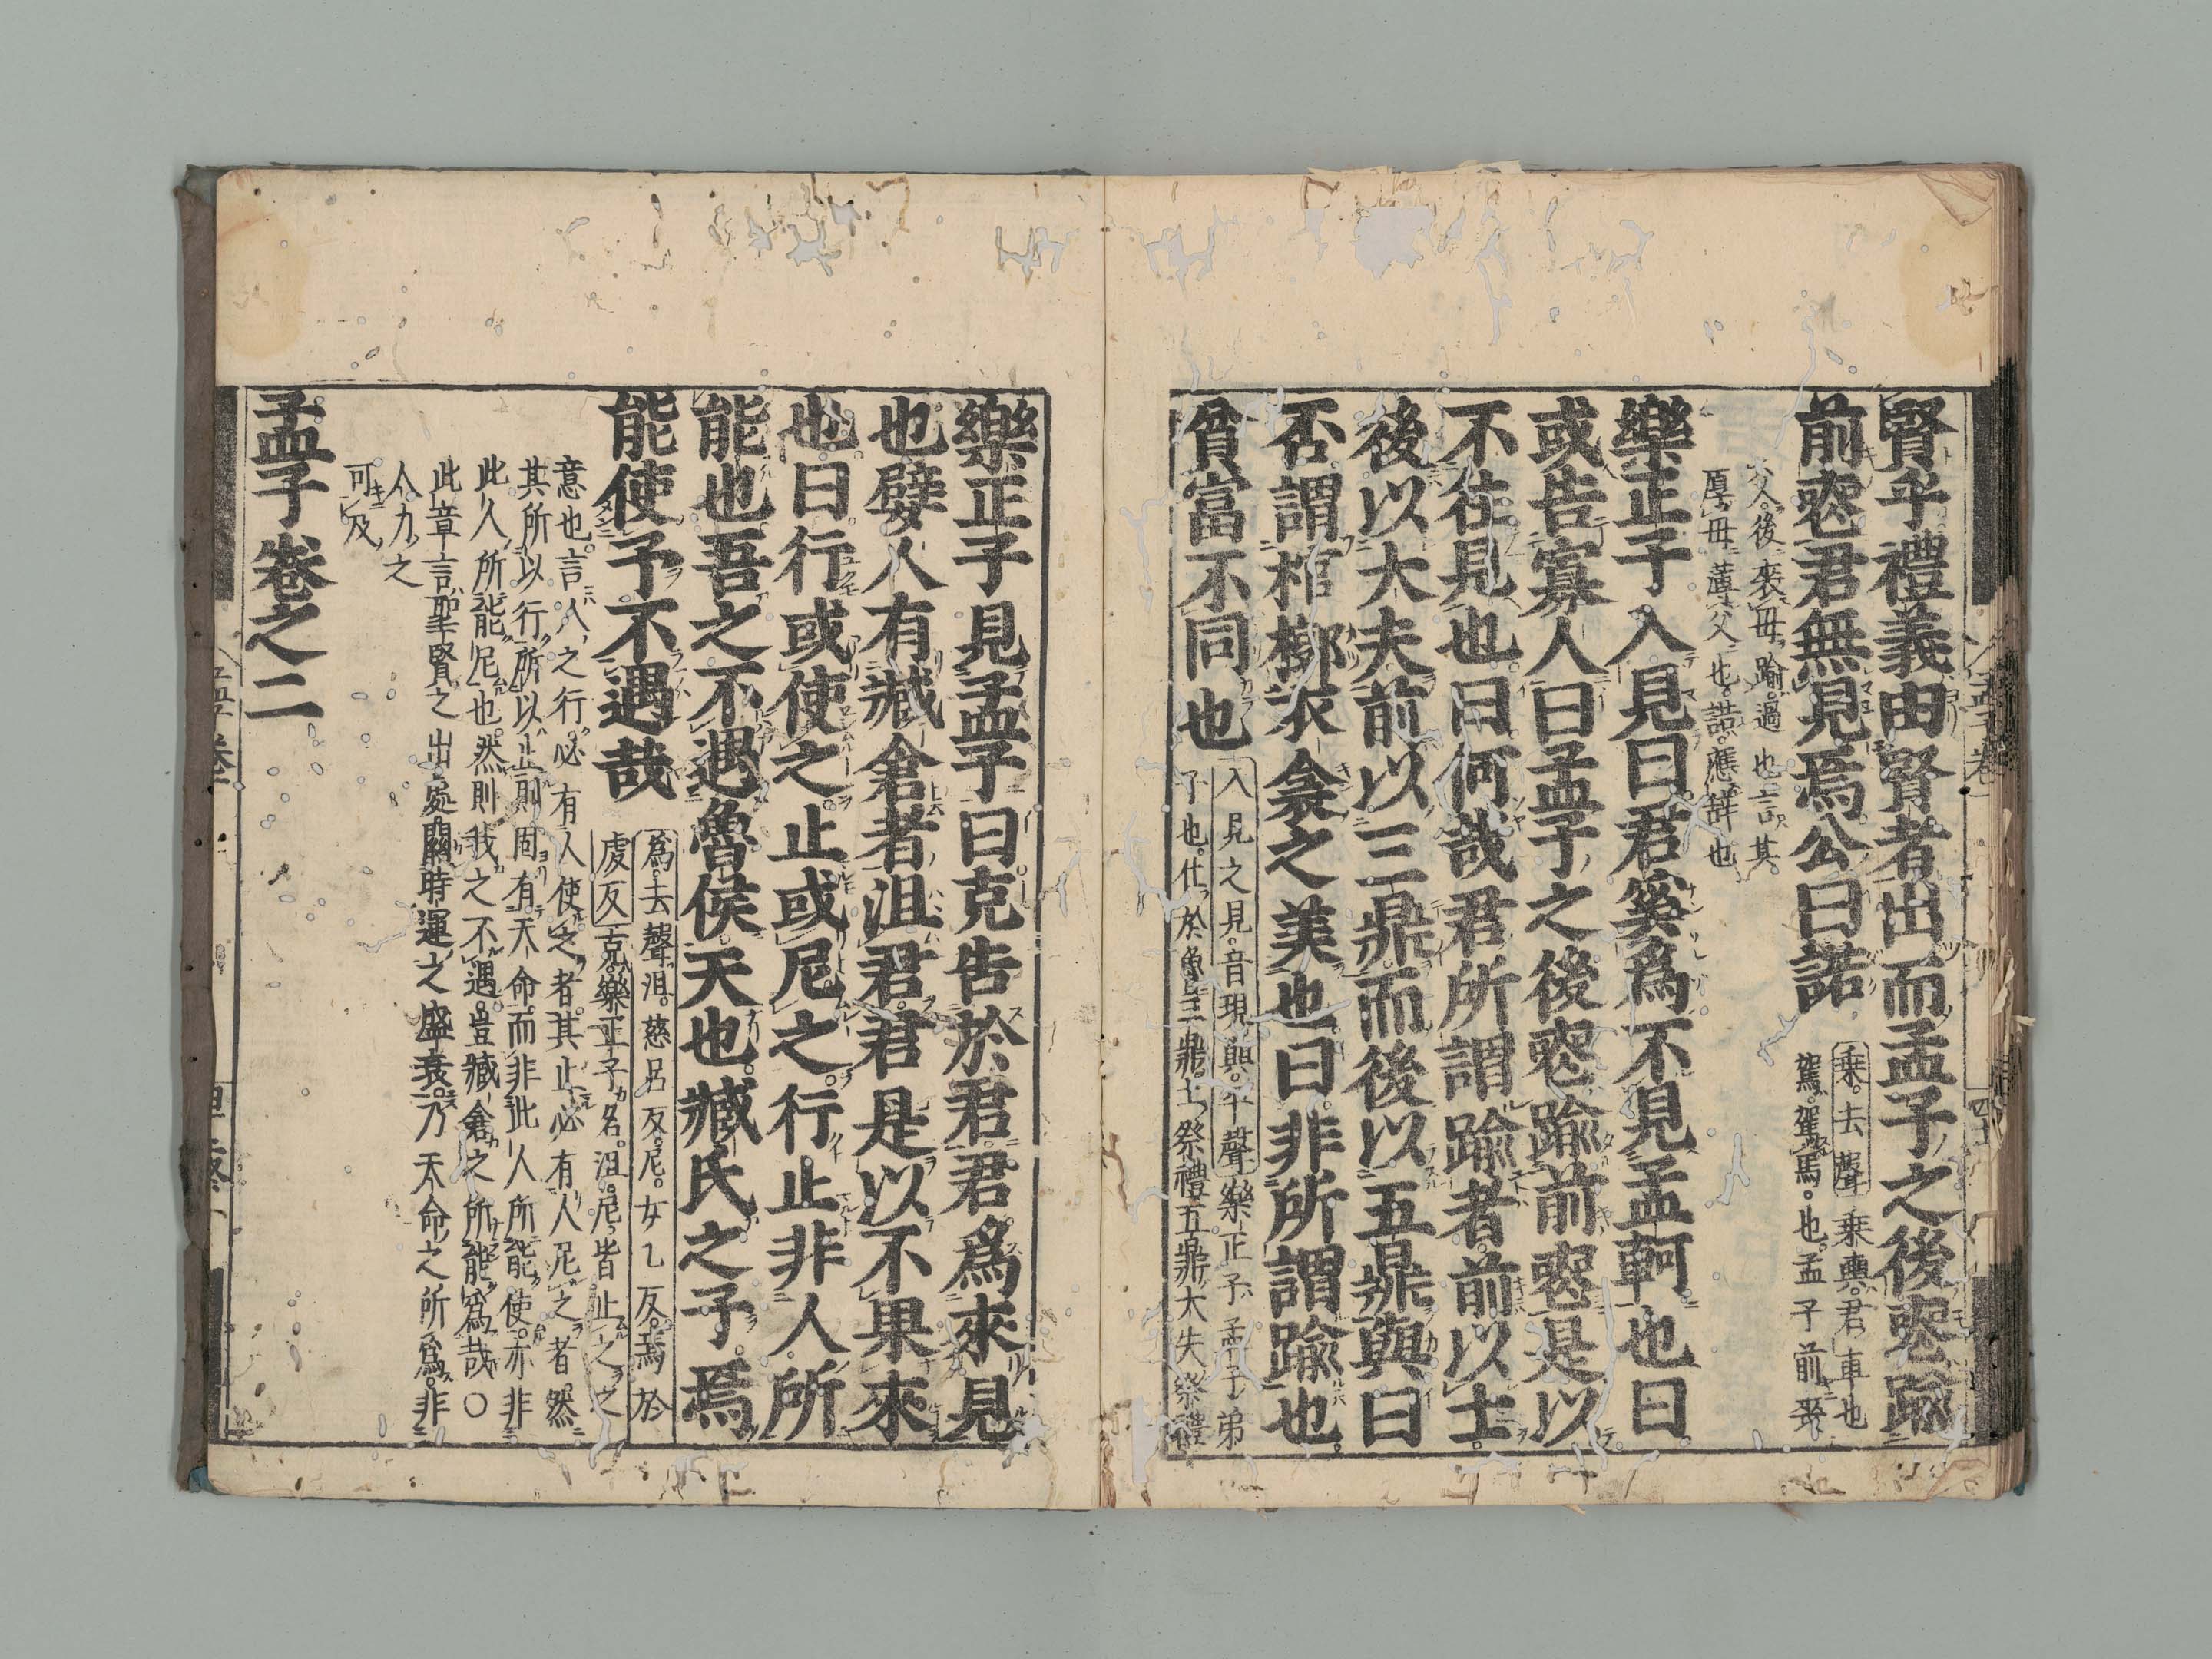 賢乎禮義由賢者出而孟子之後喪踰
前喪君無見焉公曰諾
乗去聲乗輿君車也
駕駕馬也孟子前喪
父後喪母踰過也言其
厚母薄父也諾應辭也
樂正子入見曰君奚爲不見孟軻也曰
或告寡人曰孟子之後喪踰前喪是以
不往見也曰何哉君所謂踰者前以士
後以大夫前以三鼎而後以五鼎與曰
否謂棺槨衣衾之美也曰非所謂踰也
貧富不同也
入見之見音現與平聲樂正子孟子弟
子也仕於魯三鼎士祭禮五鼎大夫祭禮
樂正子見孟子曰克告於君君爲來見
也嬖人有臧倉者沮君君是以不果來
也曰行或使之止或尼之行止非人所
能也吾之不遇魯侯天也臧氏之子焉
能使予不遇哉
爲去聲沮慈呂反尼女乙反焉於
虔反克樂正子名沮尼皆止之之
意也言人之行必有人使之者其止必有人尼之者然
其所以行所以止則固有天命而非此人所能使亦非
此人所能尼也然則我之不遇豈臧倉之所能爲哉○
此章言聖賢之出處關時運之盛衰乃天命之所爲非
人力之
可及
孟子卷之二